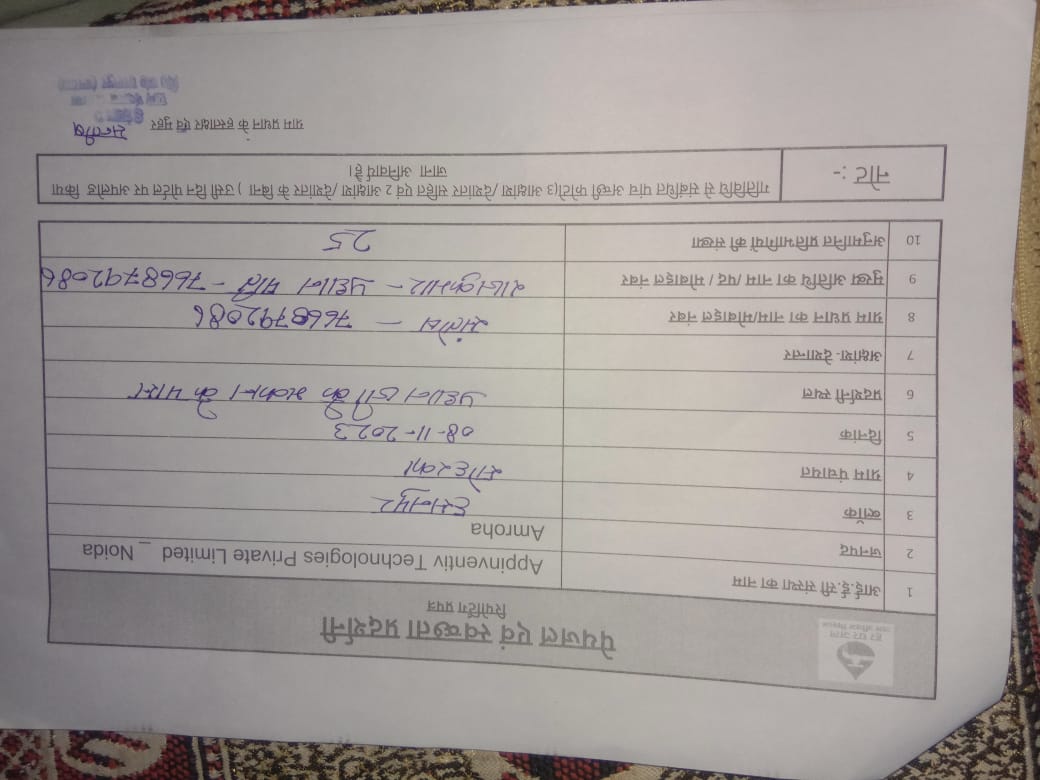 हर घर जल
जल जीवन मिशन
पेयजल एवं स्वच्छता प्रदर्शनी
रिपोर्टिंग प्रपत्र
1 आई.ई.सी संस्था का नाम Appinventiv Technologies Private Limited _ Noida
2 जनपद Amroha
3 ब्लॉक हसनपुर
4 ग्राम पंचायत
5 दिनांक 08-11-2023
6 प्रदर्शनी स्थल प्रधान जी के मकान के पास
7 अक्षांश- देशान्तर
8 ग्राम प्रधान का नाम/मोबाइल नंबर संतोष - 7668792086
9 मुख्य अतिथि का नाम /पद / मोबाइल नंबर राजकुमार - प्रधान पति - 7668792086
10 अनुमानित प्रतिभागियों की संख्या 25
नोट :- गतिविधि से संबंधित पांच अच्छी फोटो(3 आक्षांश /देशांतर सहित एवं 2 आक्षांश /देशांतर के बिना ) उसी दिन पोर्टल पर अपलोड किया
जाना अनिवार्य है।
ग्राम प्रधान के हस्ताक्षर एवं मुहर सन्तोष